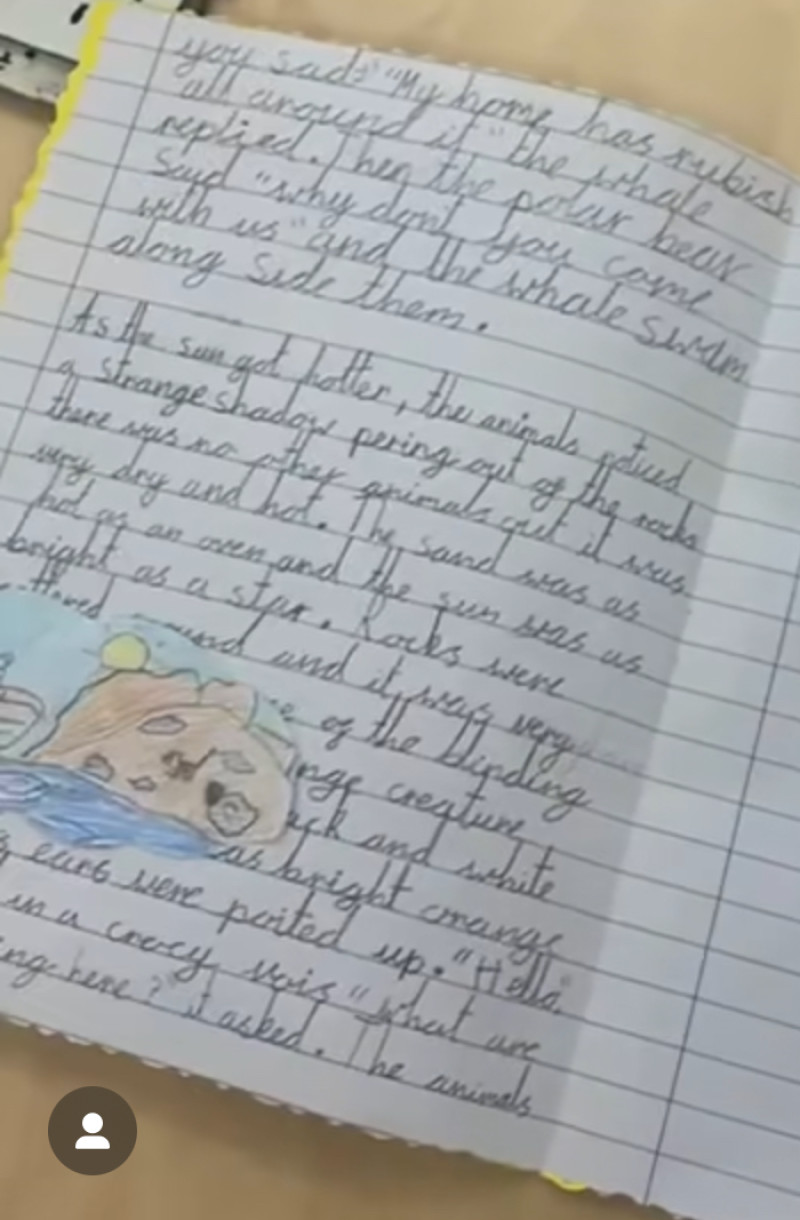 you sad? "My home has rubish
all around it" the whale
replied. Then the polar bear
Said "why don't you come
with us" and the whale swam
along Side them.
As the sun got hotter, the animals noticed
a strange shadow pering out of the rocks
there was no other animals out it was
very dry and hot. The sand was as
hot as an oven and the sun was as
bright as a star. Rocks were
and it was very
of the blinding
creature
and white
as bright orange
ears were pointed up. "Hello"
in a crocy vois "What are
here?" it asked. The animals